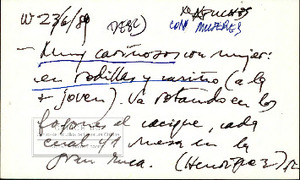 W 23/6/89 (DESC) CON MUJERES
- Muy cariñosos con mujer:
en rodillas y cariño (a la
+ joven). Va rotando en los
fogones el cacique, cada
cual c/ mesa en la
gran ruca. (Henríquez)